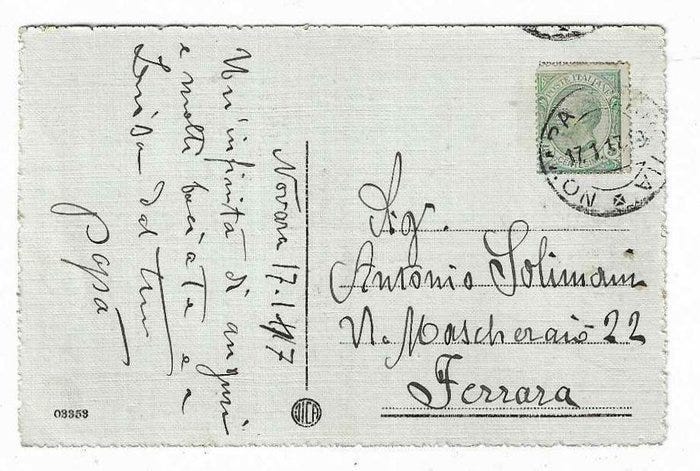 Novara 17.1.417
Un'infinità di auguri
e molti baci a te e a
Luisa dal tuo
papà
Sig.
Antonio Solimani
V. Mascheraio 22
Ferrara
POSTE ITALIANE
NOVARA
17.1.17
03353